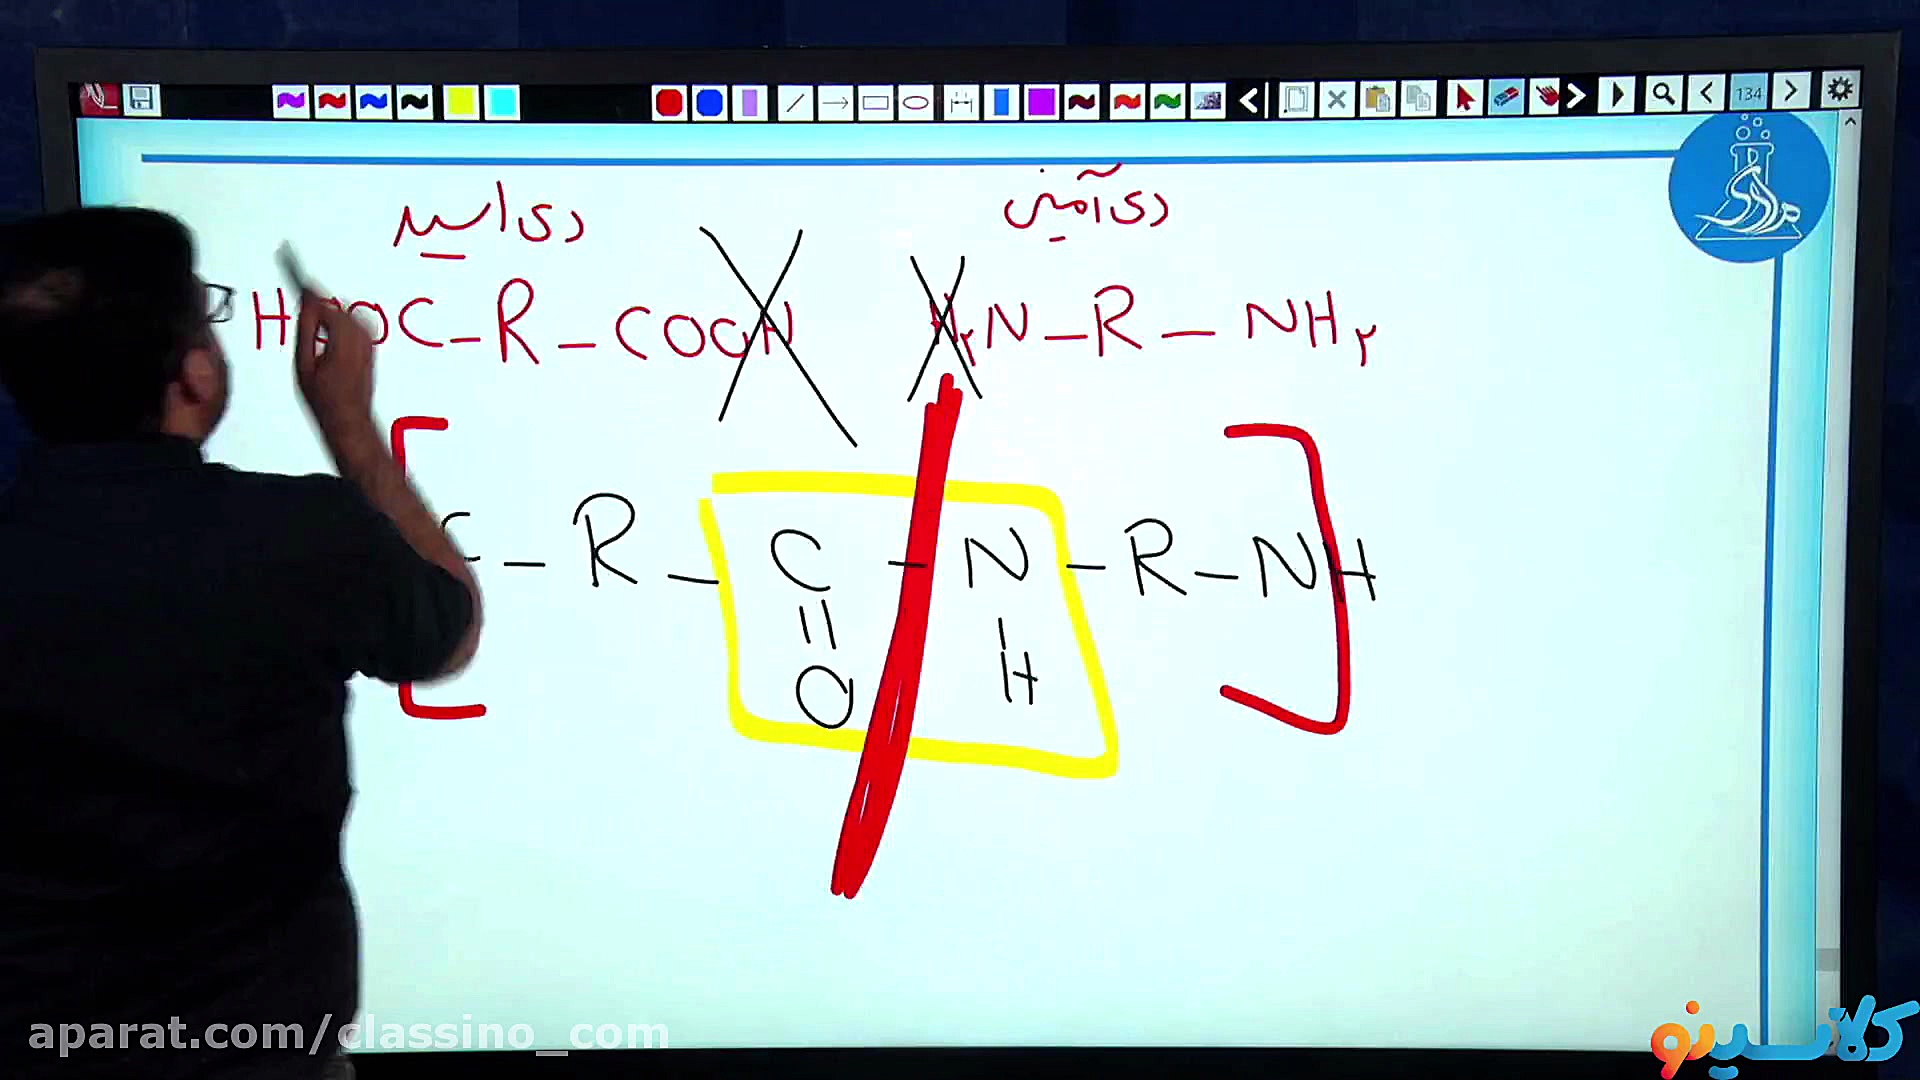 134
مرادی
دی اسید
دی آمین
HOOC-R-COOH
H۲N-R-NH۲
C-R-C-N-R-NH
O H
aparat.com/classino_com
کلاسینو